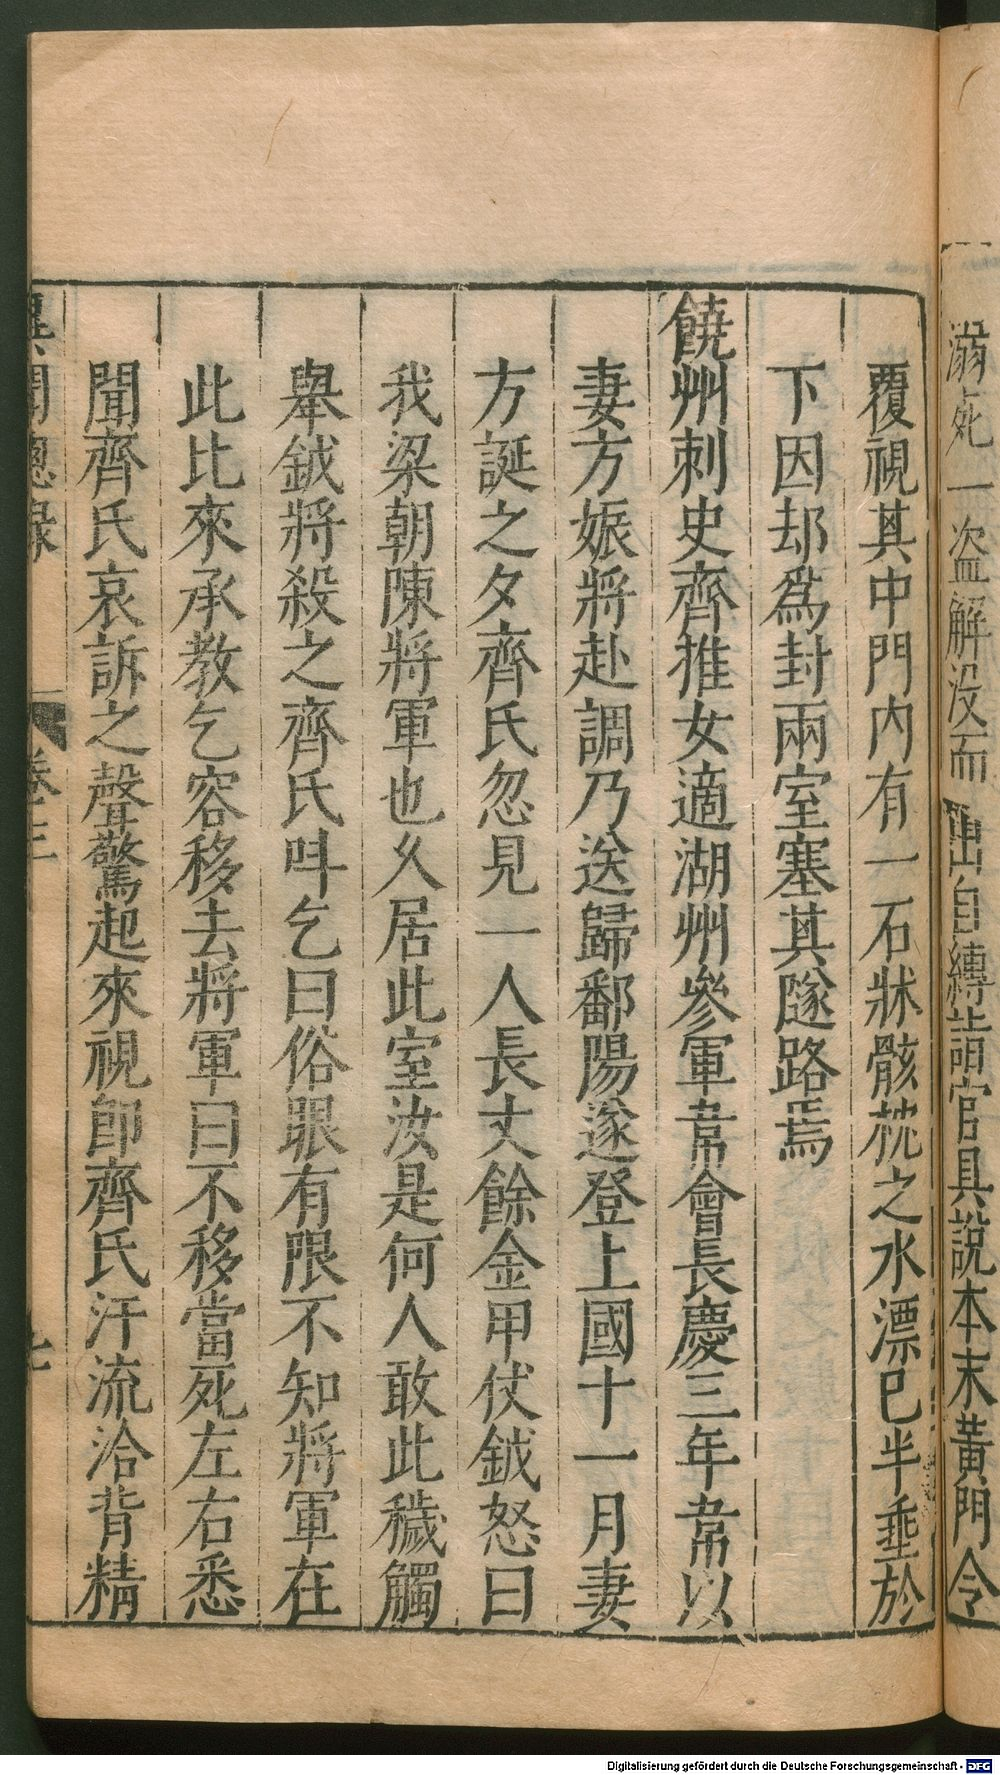 溺死一盗解没而出自縛詣官具說本末黃門令
覆視其中門内有一石牀骸枕之水漂巳半垂於
下因却爲封兩室塞其隧路焉
饒州刺史齊推女適湖州參軍韋會長慶三年韋以
妻方娠將赴調乃送歸鄱陽遂登上國十一月妻
方誕之夕齊氏忽見一人長丈餘金甲仗鉞怒曰
我梁朝陳將軍也乆居此室汝是何人敢此穢觸
舉鉞將殺之齊氏呌乞曰俗眼有限不知將軍在
此比來承教乞容移去將軍曰不移當死左右悉
聞齊氏哀訴之聲驚起來視卽齊氏汗流洽背精
異聞總錄 卷三 七
Digitalisierung gefördert durch die Deutsche Forschungsgemeinschaft - DFG